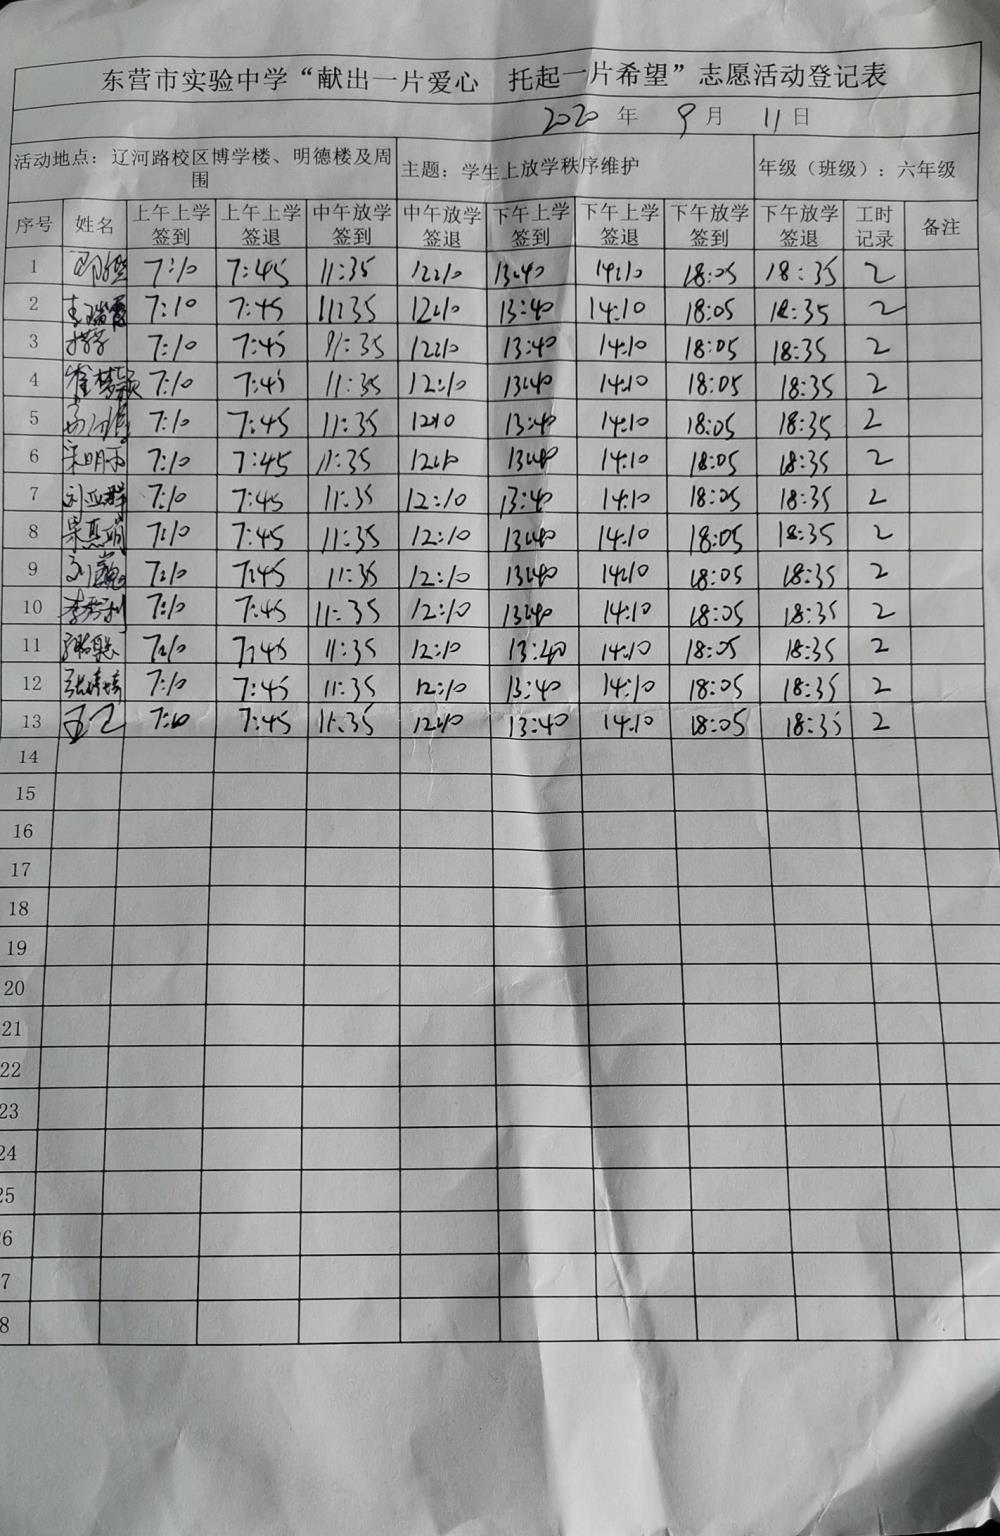 东营市实验中学“献出一片爱心 托起一片希望”志愿活动登记表
2020 年 9 月 11 日
活动地点：辽河路校区博学楼、明德楼及周围 主题：学生上放学秩序维护 年级（班级）：六年级
序号 姓名 上午上学签到 上午上学签退 中午放学签到 中午放学签退 下午上学签到 下午上学签退 下午放学签到 下午放学签退 工时记录 备注
1 7:10 7:45 11:35 12:10 13:40 14:10 18:05 18:35 2
2 7:10 7:45 11:35 12:10 13:40 14:10 18:05 18:35 2
3 7:10 7:45 11:35 12:10 13:40 14:10 18:05 18:35 2
4 7:10 7:45 11:35 12:10 13:40 14:10 18:05 18:35 2
5 7:10 7:45 11:35 12:10 13:40 14:10 18:05 18:35 2
6 宋明雨 7:10 7:45 11:35 12:10 13:40 14:10 18:05 18:35 2
7 刘亚群 7:10 7:45 11:35 12:10 13:40 14:10 18:05 18:35 2
8 7:10 7:45 11:35 12:10 13:40 14:10 18:05 18:35 2
9 刘巍 7:10 7:45 11:35 12:10 13:40 14:10 18:05 18:35 2
10 7:10 7:45 11:35 12:10 13:40 14:10 18:05 18:35 2
11 7:10 7:45 11:35 12:10 13:40 14:10 18:05 18:35 2
12 张婧婧 7:10 7:45 11:35 12:10 13:40 14:10 18:05 18:35 2
13 7:10 7:45 11:35 12:10 13:40 14:10 18:05 18:35 2
14
15
16
17
18
19
20
21
22
23
24
25
6
7
8